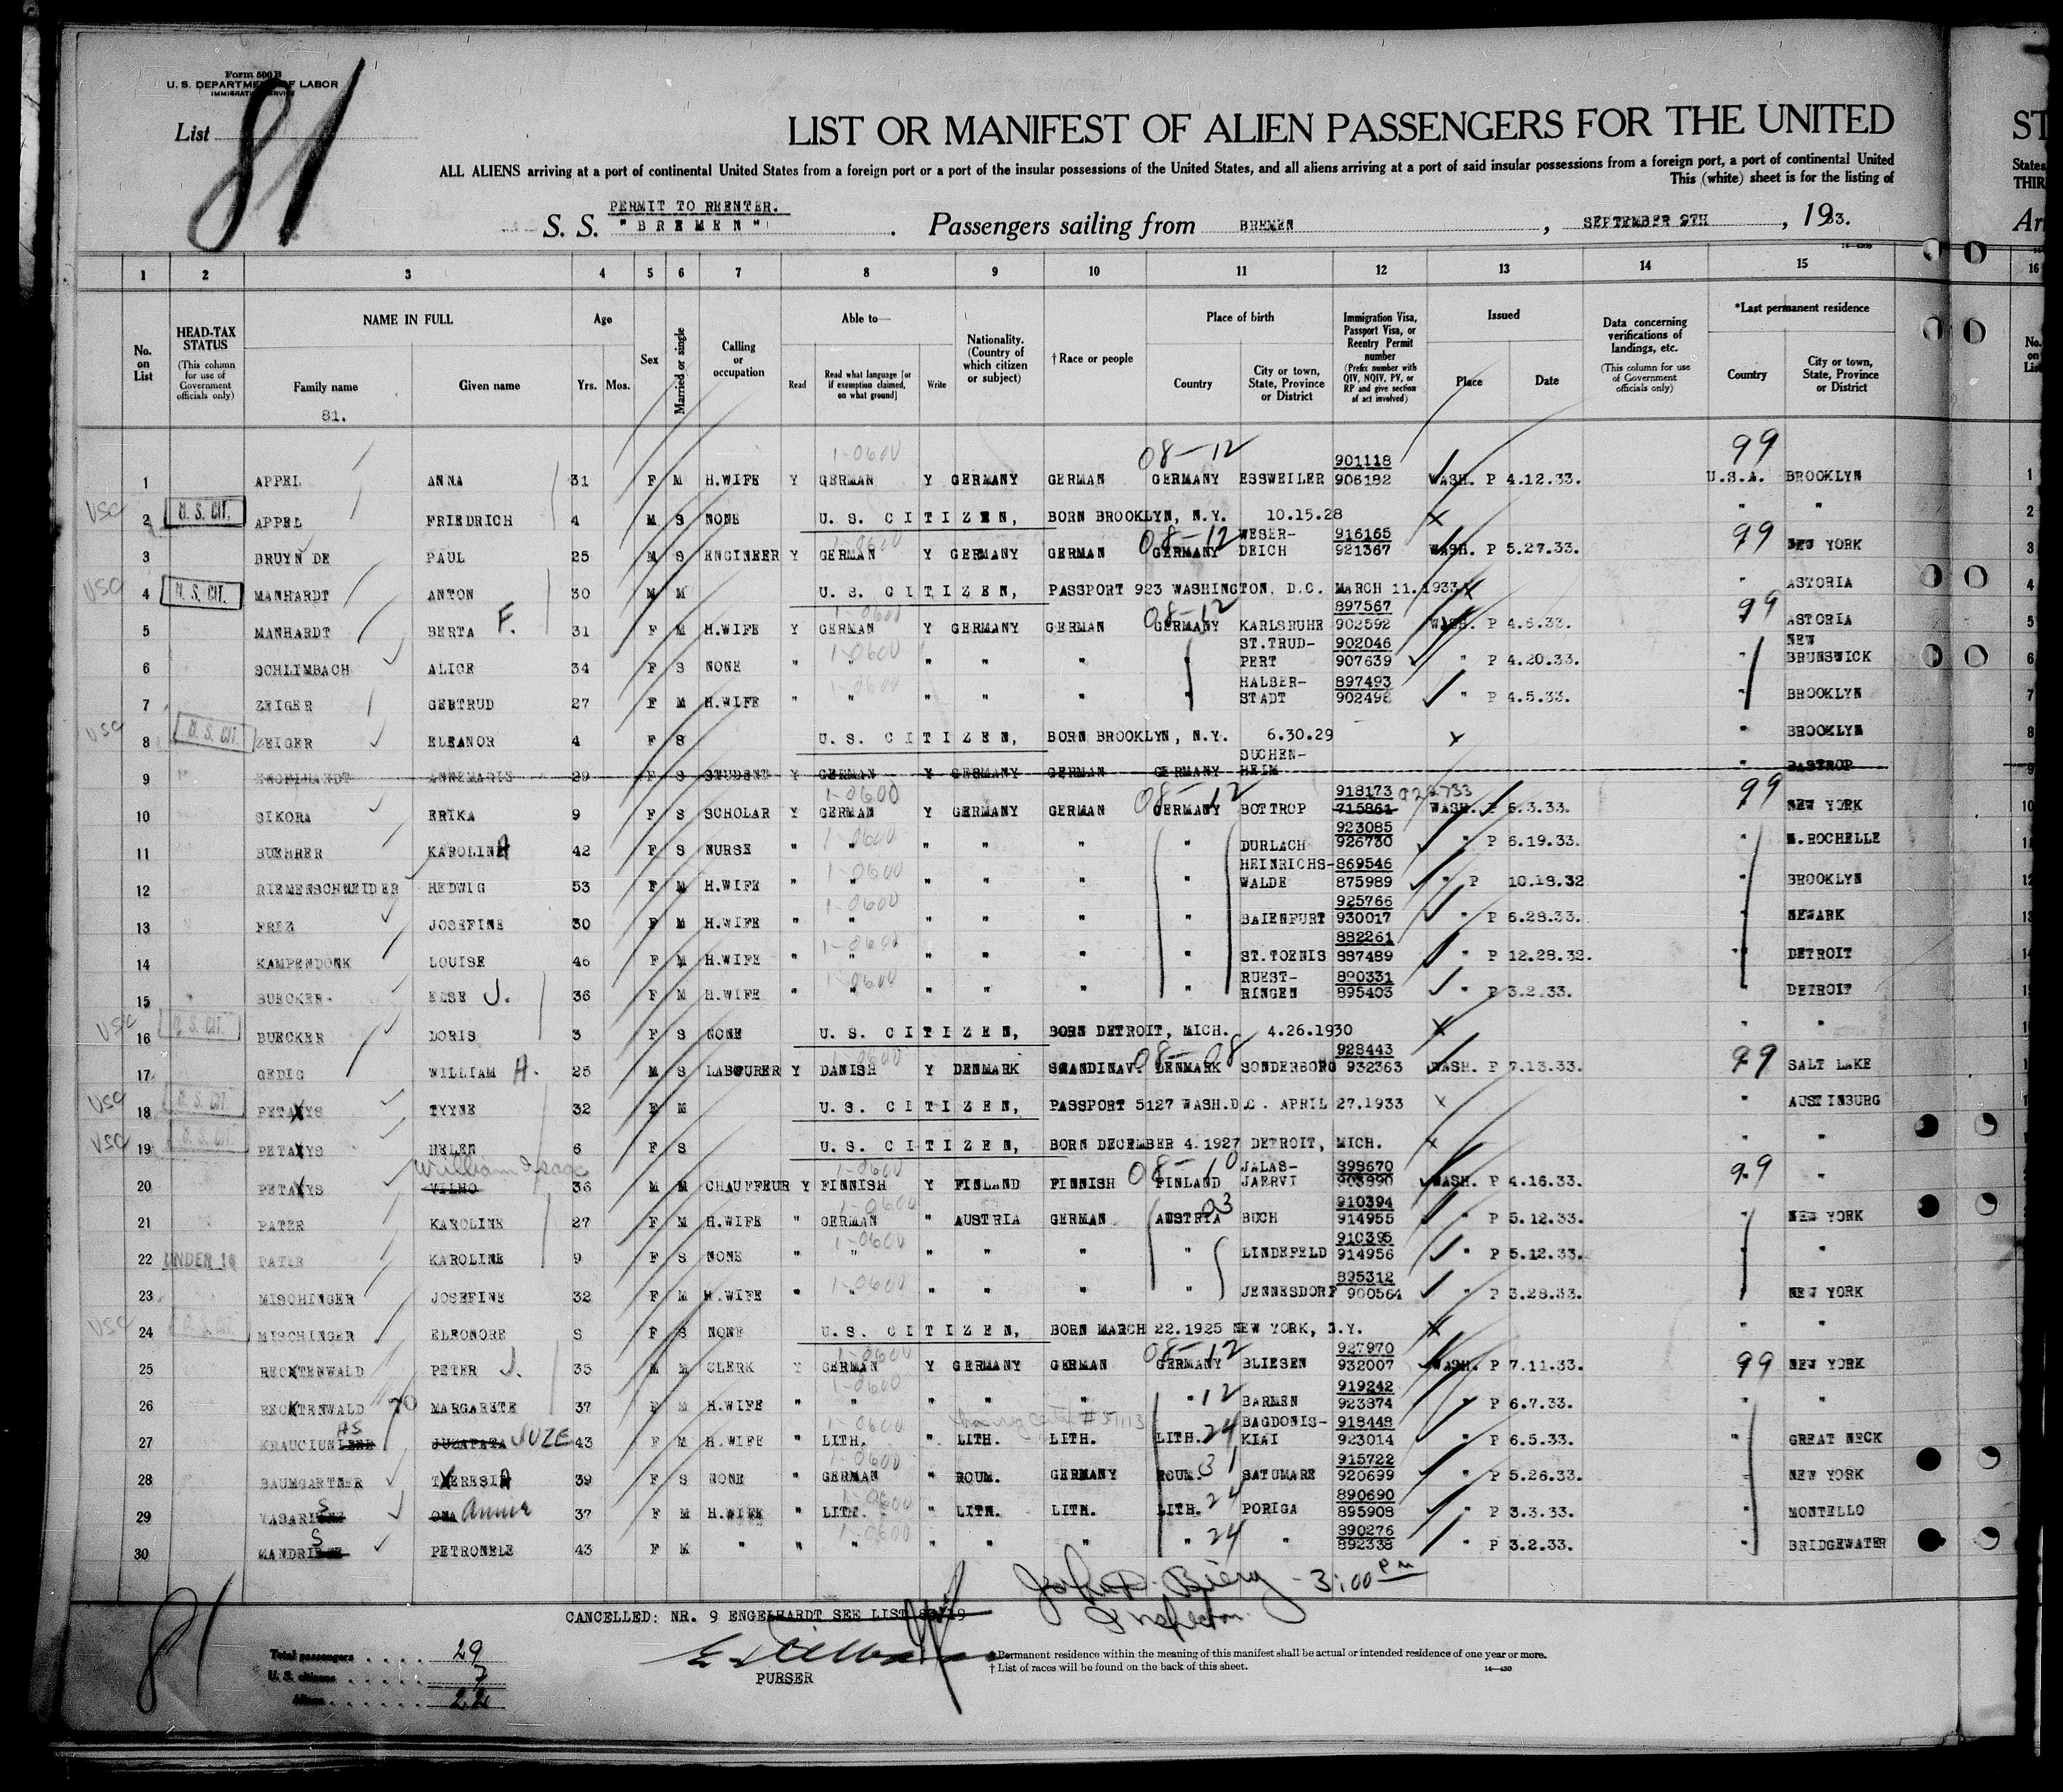 Form 500 B
U. S. DEPARTMENT OF LABOR
IMMIGRATION SERVICE
List 81
LIST OR MANIFEST OF ALIEN PASSENGERS FOR THE UNITED
ST
ALL ALIENS arriving at a port of continental United States from a foreign port or a port of the insular possessions of the United States, and all aliens arriving at a port of said insular possessions from a foreign port, a port of continental United
States
This (white) sheet is for the listing of
THIR
PERMIT TO REENTER.
S. S. "BREMEN" . Passengers sailing from BREMEN , SEPTEMBER 9TH , 1933.
Arr
1 2 3 4 5 6 7 8 9 10 11 12 13 14 15 16
No. on List
HEAD-TAX STATUS (This column for use of Government officials only)
NAME IN FULL
Family name
Given name
81.
Age
Yrs. Mos.
Sex
Married or single
Calling or occupation
Able to—
Read
Read what language [or if exemption claimed, on what ground]
Write
Nationality. (Country of which citizen or subject)
† Race or people
Place of birth
Country
City or town, State, Province or District
Immigration Visa, Passport Visa, or Reentry Permit number (Prefix number with QIV, NQIV, PV, or RP and give section of act involved)
Issued
Place
Date
Data concerning verifications of landings, etc. (This column for use of Government officials only)
*Last permanent residence
Country
City or town, State, Province or District
1 APPEL ANNA 31 F M H.WIFE Y GERMAN Y GERMANY GERMAN GERMANY ESSWEILER 901118 906182 WASH. P 4.12.33. U.S.A. BROOKLYN 1
1-0600 08-12 99
USC 2 U. S. CIT. APPEL FRIEDRICH 4 M S NONE U. S. CITIZEN, BORN BROOKLYN, N.Y. 10.15.28 " " 2
3 BRUYN DE PAUL 25 M S ENGINEER Y GERMAN Y GERMANY GERMAN GERMANY WESER-DEICH 916165 921367 WASH. P 5.27.33. NEW YORK 3
1-0600 08-12 99
USC 4 U. S. CIT. MANHARDT ANTON 30 M M U. S. CITIZEN, PASSPORT 923 WASHINGTON, D.C. MARCH 11.1933 " ASTORIA 4
5 MANHARDT BERTA F. 31 F M H.WIFE Y GERMAN Y GERMANY GERMAN GERMANY KARLSRUHE 897567 902592 WASH. P 4.5.33. ASTORIA 5
1-0600 08-12 99
6 SCHLIMBACH ALICE 34 F S NONE " " " " " " ST.TRUD-PERT 902046 907639 " P 4.20.33. " NEW BRUNSWICK 6
1-0600
7 ZEIGER GERTRUD 27 F M H.WIFE " " " " " " HALBER-STADT 897493 902498 " P 4.5.33. " BROOKLYN 7
1-0600
USC 8 U. S. CIT. ZEIGER ELEANOR 4 F S U. S. CITIZEN, BORN BROOKLYN, N.Y. 6.30.29 " BROOKLYN 8
9 ENGELHARDT ANNEMARIE 29 F S STUDENT Y GERMAN Y GERMANY GERMAN GERMANY BUCHEN-HEIM " BASTROP 9
10 SIKORA ERIKA 9 F S SCHOLAR Y GERMAN Y GERMANY GERMAN GERMANY BOTTROP 918173 715861 922733 WASH. P 6.3.33. NEW YORK 10
1-0600 08-12 99
11 BUEHRER KAROLINA 42 F S NURSE " " " " " " DURLACH 923085 926730 " P 6.19.33. " N.ROCHELLE 11
1-0600
12 RIEMENSCHNEIDER HEDWIG 53 F M H.WIFE " " " " " " HEINRICHS-WALDE 869546 875989 " P 10.18.32 " BROOKLYN 12
1-0600
13 FRIZ JOSEFINE 30 F M H.WIFE " " " " " " BAIENFURT 925766 930017 " P 6.28.33. " NEWARK 13
1-0600
14 KAMPENDONK LOUISE 46 F M H.WIFE " " " " " " ST.TOENIS 882261 887489 " P 12.28.32. " DETROIT 14
1-0600
15 BUECKER ELSE J. 36 F M H.WIFE " " " " " " RUEST-RINGEN 890331 895403 " P 3.2.33. " DETROIT
1-0600
USC 16 U. S. CIT. BUECKER DORIS 3 F S NONE U. S. CITIZEN, BORN DETROIT, MICH. 4.26.1930 " "
17 GEDIG WILLIAM H. 25 M S LABOURER Y DANISH Y DENMARK SCANDINAV. DENMARK SONDERBORG 928443 932363 WASH. P 7.13.33. SALT LAKE
1-0600 08-08 99
USC 18 U. S. CIT. PETAYS TYYNE 32 F M U. S. CITIZEN, PASSPORT 5127 WASH.D.C. APRIL 27.1933 " AUSTINBURG
USC 19 U. S. CIT. PETAYS HELEN 6 F S U. S. CITIZEN, BORN DECEMBER 4.1927 DETROIT, MICH. " "
20 PETAYS VILHO William Isaac 36 M M CHAUFFEUR Y FINNISH Y FINLAND FINNISH FINLAND JALAS-JARVI 898670 903890 WASH. P 4.16.33. "
1-0600 08-10 99
21 PATER KAROLINE 27 F M H.WIFE " GERMAN " AUSTRIA GERMAN AUSTRIA BUCH 910394 914955 " P 5.12.33. " NEW YORK
1-0600 03
22 UNDER 16 PATER KAROLINE 9 F S NONE " " " " " " LINDEFELD 910395 914956 " P 5.12.33. " "
1-0600
23 MISCHINGER JOSEFINE 32 F M H.WIFE " " " " " " JENNESDORF 895312 900564 " P 3.28.33. " NEW YORK
1-0600
USC 24 U. S. CIT. MISCHINGER ELEONORE 8 F S NONE U. S. CITIZEN, BORN MARCH 22.1925 NEW YORK, N.Y. " "
25 RECKTENWALD PETER J. 35 M M CLERK Y GERMAN Y GERMANY GERMAN GERMANY BLIESEN 927970 932007 WASH. P 7.11.33. NEW YORK
1-0600 08-12 99
26 RECKTENWALD MARGARETE 37 F M H.WIFE " " " " " " 12 BARMEN 919242 923874 " P 6.7.33. " "
1-0600
27 KRAUCIUNIENE AS JUZAPATA JUZE 43 F M H.WIFE " LITH. " LITH. LITH. LITH. 24 BAGDONIS-KIAI 918448 923014 " P 6.5.33. " GREAT NECK
1-0600
28 BAUMGARTNER THERESIA 39 F S NONE " GERMAN " ROUM. GERMANY ROUM. 31 SATUMARE 915722 920699 " P 5.26.33. " NEW YORK
1-0600
29 VASARIS ONA Anna 37 F M H.WIFE " LITH. " LITH. LITH. LITH. 24 PORIGA 890690 895908 " P 3.3.33. " MONTELLO
1-0600
30 MANDRIS PETRONELE 43 F M " " " " " " " 24 " 890276 892338 " P 3.2.33. " BRIDGEWATER
1-0600
3:00 PM
Inspector.
CANCELLED: NR. 9 ENGELHARDT SEE LIST
81
PURSER
Total passengers . . . . 29
U. S. citizens . . . . . 7
Aliens . . . . . . . 22
*Permanent residence within the meaning of this manifest shall be actual or intended residence of one year or more.
† List of races will be found on the back of this sheet.
14—430